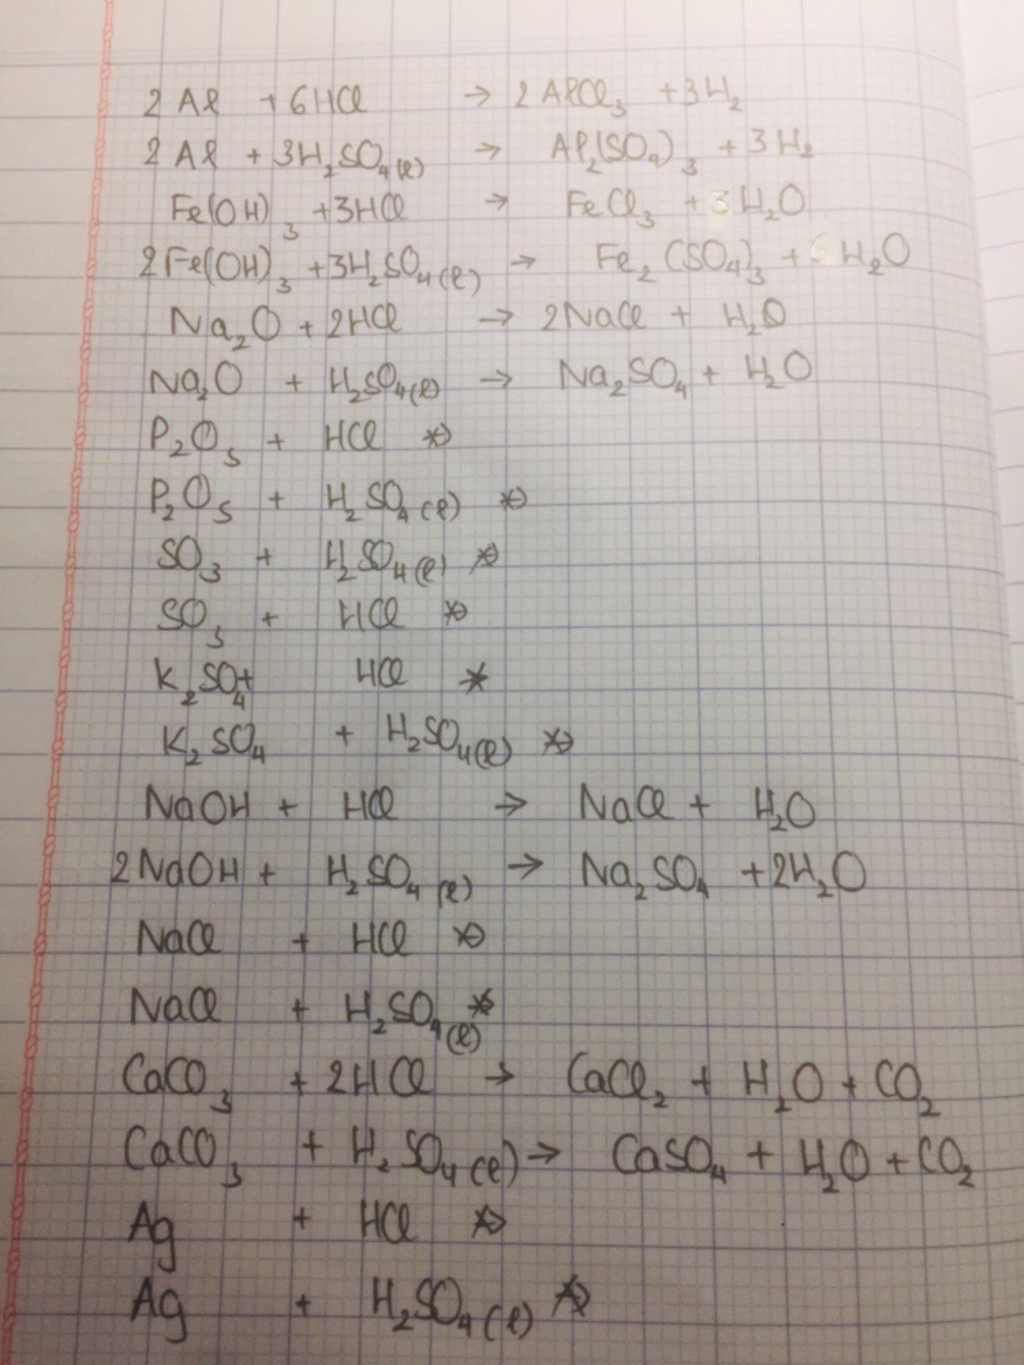 2Al + 6HCl → 2AlCl₃ + 3H₂
2Al + 3H₂SO₄(l) → Al₂(SO₄)₃ + 3H₂
Fe(OH)₃ + 3HCl → FeCl₃ + 3H₂O
2Fe(OH)₃ + 3H₂SO₄(l) → Fe₂(SO₄)₃ + 6H₂O
Na₂O + 2HCl → 2NaCl + H₂O
Na₂O + H₂SO₄(l) → Na₂SO₄ + H₂O
P₂O₅ + HCl ↛
P₂O₅ + H₂SO₄(l) ↛
SO₃ + H₂SO₄(l) ↛
SO₃ + HCl ↛
K₂SO₄ + HCl ↛
K₂SO₄ + H₂SO₄(l) ↛
NaOH + HCl → NaCl + H₂O
2NaOH + H₂SO₄(l) → Na₂SO₄ + 2H₂O
NaCl + HCl ↛
NaCl + H₂SO₄(l) ↛
CaCO₃ + 2HCl → CaCl₂ + H₂O + CO₂
CaCO₃ + H₂SO₄(l) → CaSO₄ + H₂O + CO₂
Ag + HCl ↛
Ag + H₂SO₄(l) ↛